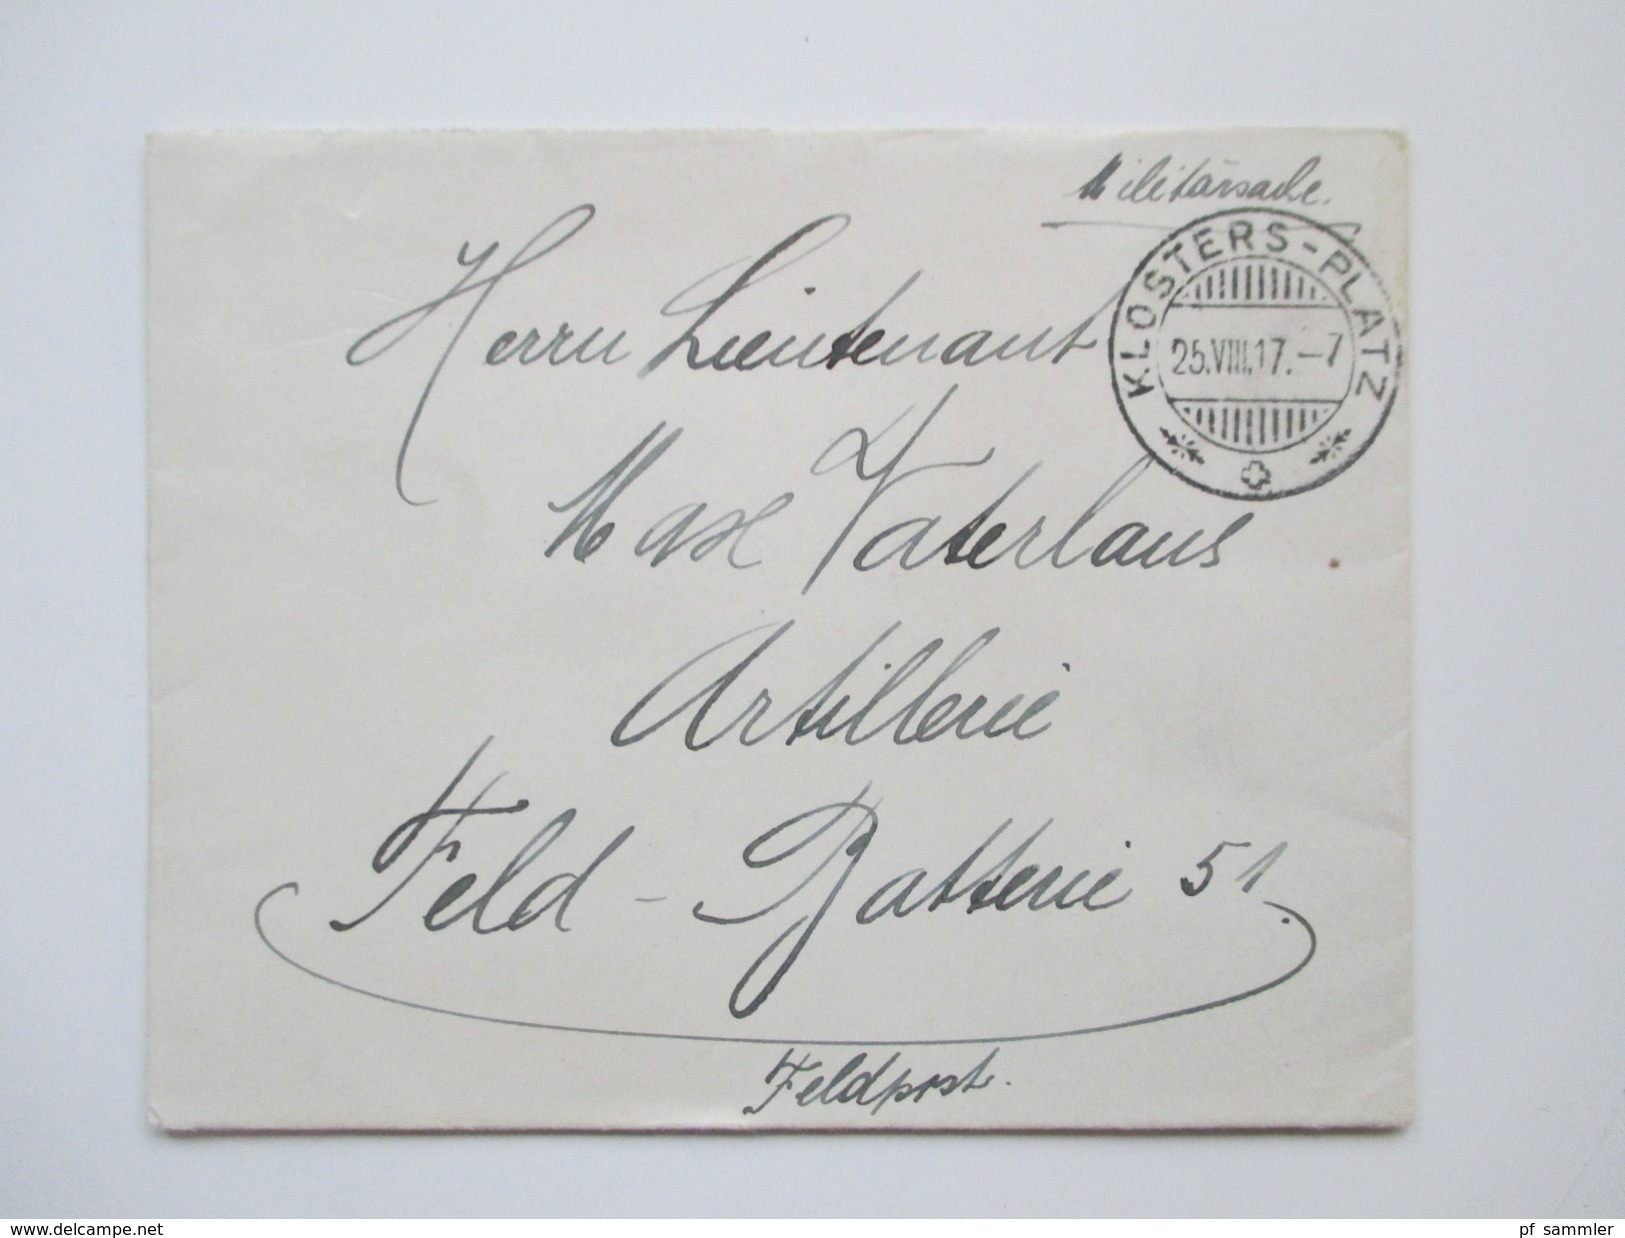 Militärsache.
KLOSTERS-PLATZ
25.VIII.17.-7
Herrn Lieutenant
Max Vaterlaus
Artillerie
Feld - Batterie 51.
Feldpost.
www.delcampe.net
pf_sammler